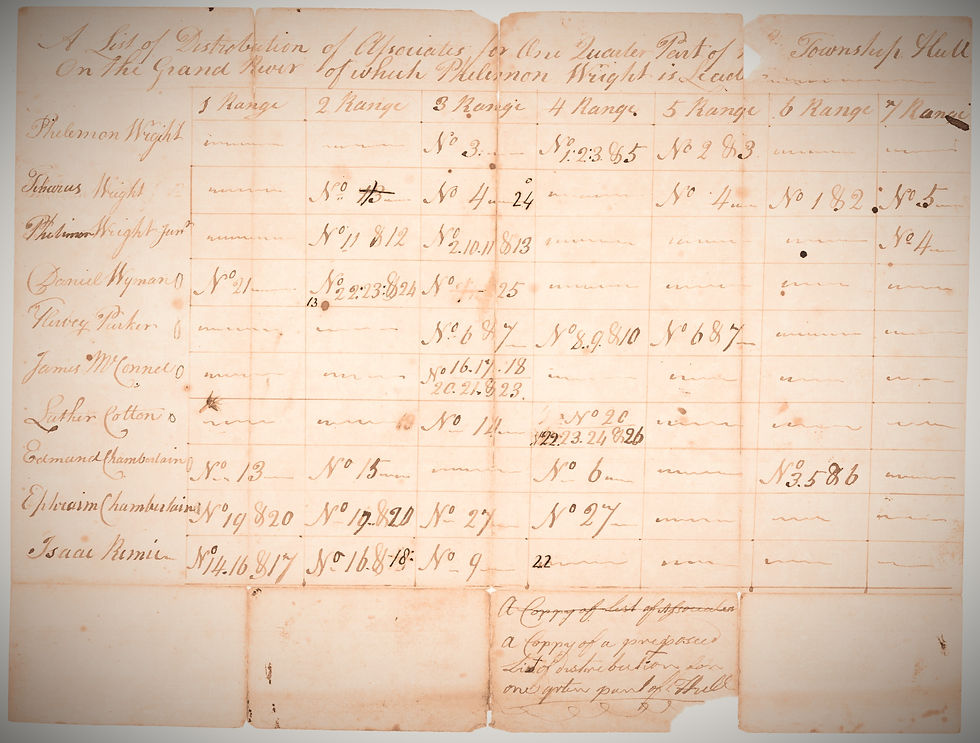 A List of Distrobution of Associates for One Quarter Part of Township Hull
On the Grand River of which Philemon Wright is Lead
1 Range 2 Range 3 Range 4 Range 5 Range 6 Range 7 Range
Philemon Wright No 3 No 1.2.3.&5 No 2 &3
Tiberus Wright No No 4 24 No 4 No 1 &2 No 5
Philimon Wright Junr No 11 &12 No 2.10.11 &13 No 4
Daniel Wyman 0 No 21 No 22.23.&24 No 25
13
Harvey Parker 0 No 6 &7 No 8.9.&10 No 6 &7
James McConnel 0 No 16.17.18
20.21.&23.
Luther Cotton 0 No 14 No 20
22 23.24 &26
Edmund Chamberlain 0 No 13 No 15 No 6 No 3.5 &6
Ephraim Chamberlain No 19 &20 No 19.&20 No 27 No 27
Isaac Remic No 14.16 &17 No 16.&18. No 9 22
a Coppy of List of Associates
a Coppy of a proposed
List of distribution for
one qrter part of Hull